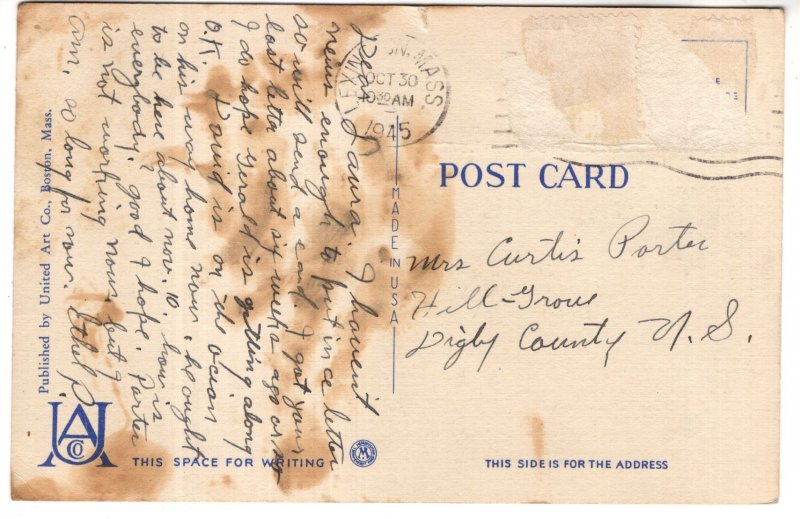 Dear Laura. I havent
news enough to put in ce letter
so will send a card. I got your
last letter about six weeks ago or so
I do hope Gerald is getting along
O.K. David is on the ocian
on his way home now. he ought
to be here about nov. 10. how is
everybody? good I hope. Porter
is not working now but I
am. so long for now. Ethel P.
N. MASS.
OCT 30
10 30 AM
1945
POST CARD
Mrs Curtis Porter
Hill-Grove
Digby County N.S.
MADE IN USA
Published by United Art Co., Boston, Mass.
UA
CO
THIS SPACE FOR WRITING
M
THIS SIDE IS FOR THE ADDRESS